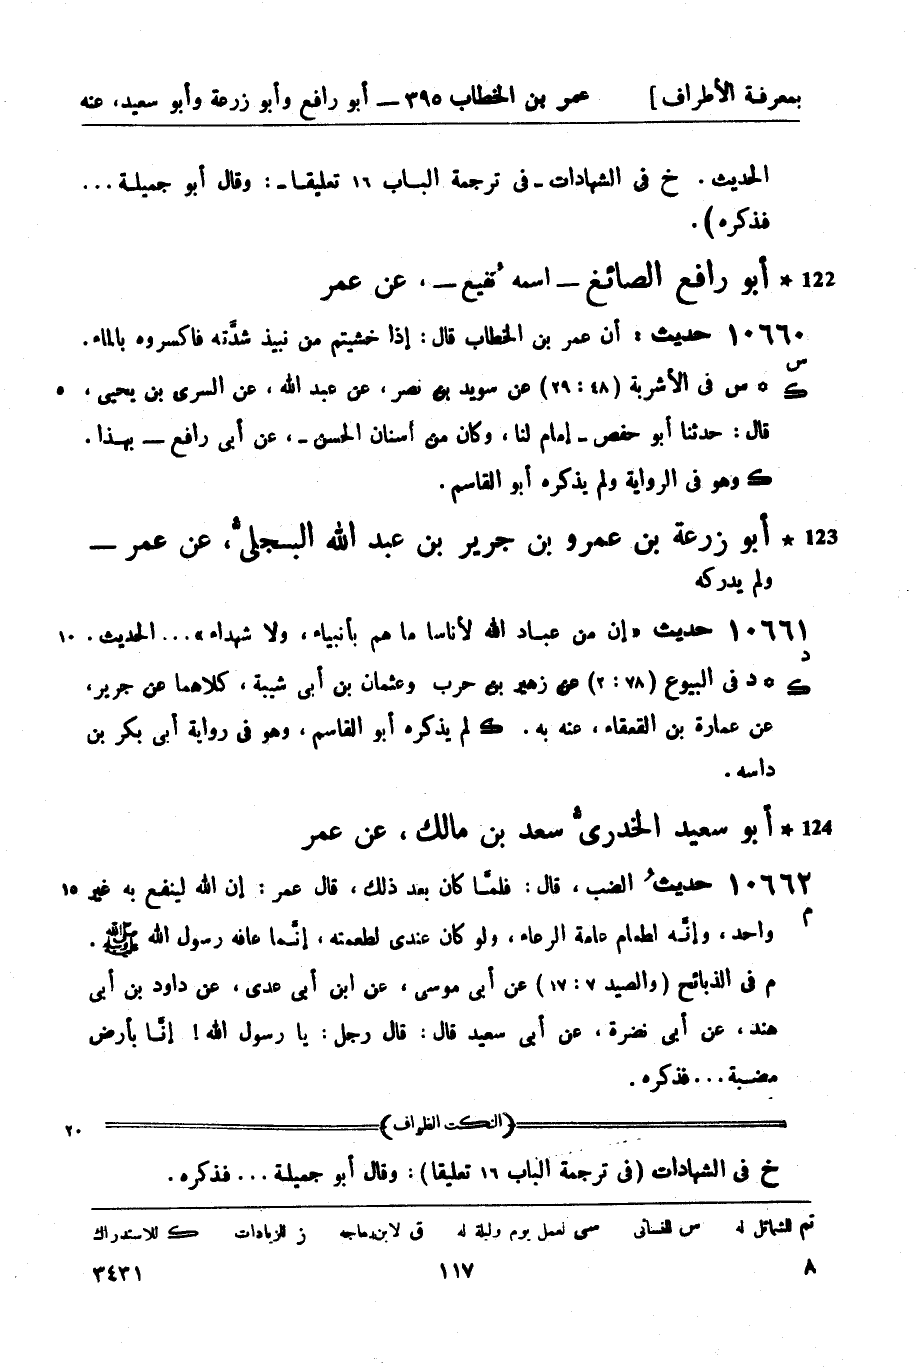 بمعرفة الأطراف] عمر بن الخطاب ٣٩٥ — أبو رافع وأبو زرعة وأبو سعيد، عنه
الحديث. خ فى الشهادات ـ فى ترجمة البـاب ١٦ تعليقـا ـ : وقال أبو جميلـة ...
فذكره).
122 * أبو رافع الصائغ — اسمه نُفيع — ، عن عمر
١٠٦٦٠ حديث : أن عمر بن الخطاب قال : إذا خشيتم من نبيذ شدَّته فاكسروه بالماء.
س
ك ٥ س فى الأشربة (٤٨ : ٢٩) عن سويد بن نصر، عن عبد الله، عن السرى بن يحيى، ٥
قال : حدثنا أبو حفص ـ إمام لنا، وكان من أسنان الحسن ـ، عن أبى رافع — بهـذا.
ك وهو فى الرواية ولم يذكره أبو القاسم.
123 * أبو زرعة بن عمرو بن جرير بن عبد الله البـجلى، عن عمر —
ولم يدركه
١٠٦٦١ حديث «إن من عبـاد الله لأناسا ما هم بأنبياء، ولا شهداء» ... الحديث. ١٠
د
ك ٥ د فى البيوع (٧٨ : ٢) عن زهير بن حرب وعثمان بن أبى شيبة، كلاهما عن جرير،
عن عمارة بن القعقاء، عنه به. ك لم يذكره أبو القاسم، وهو فى رواية أبى بكر بن
داسه.
124 * أبو سعيد الخدرى سعد بن مالك، عن عمر
١٠٦٦٢ حديث الضب، قال : فلمَّـا كان بعد ذلك، قال عمر : إن الله لينفـع به غير ١٥
م
واحد، وإنَّـه لطعام عامة الرعاء، ولو كان عندى لطعمته، إنَّـما عافه رسول الله ﷺ.
م فى الذبائح (والصيد ٧ : ١٧) عن أبى موسى، عن ابن أبى عدى، عن داود بن أبى
هند، عن أبى نضرة، عن أبى سعيد قال : قال رجل : يا رسول الله! إنَّـا بأرض
مضـبة ... فذكره.
(النكت الظراف) ٢٠
خ فى الشهادات (فى ترجمة الباب ١٦ تعليقا) : وقال أبو جميلـة ... فذكره.
تم للشمائل له س للنسائى سى لعمل يوم وليلة له ق لابن ماجه ز للزيادات ك للاستدراك
٨ ١١٧ ٣٤٣١